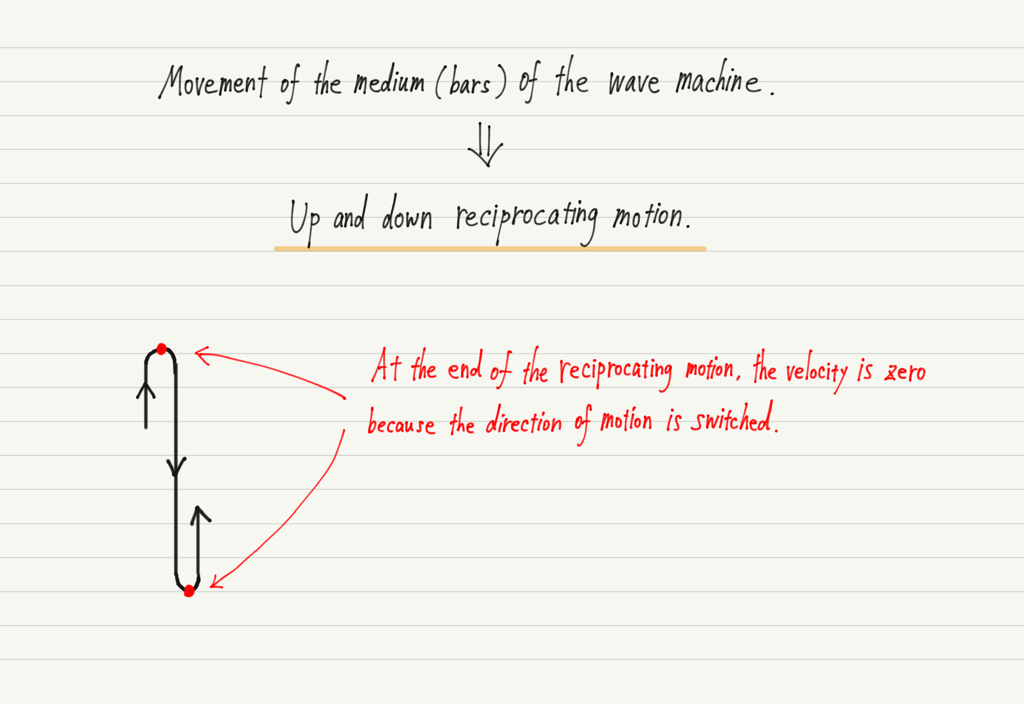 Movement of the medium (bars) of the wave machine.
Up and down reciprocating motion.
At the end of the reciprocating motion, the velocity is zero
because the direction of motion is switched.